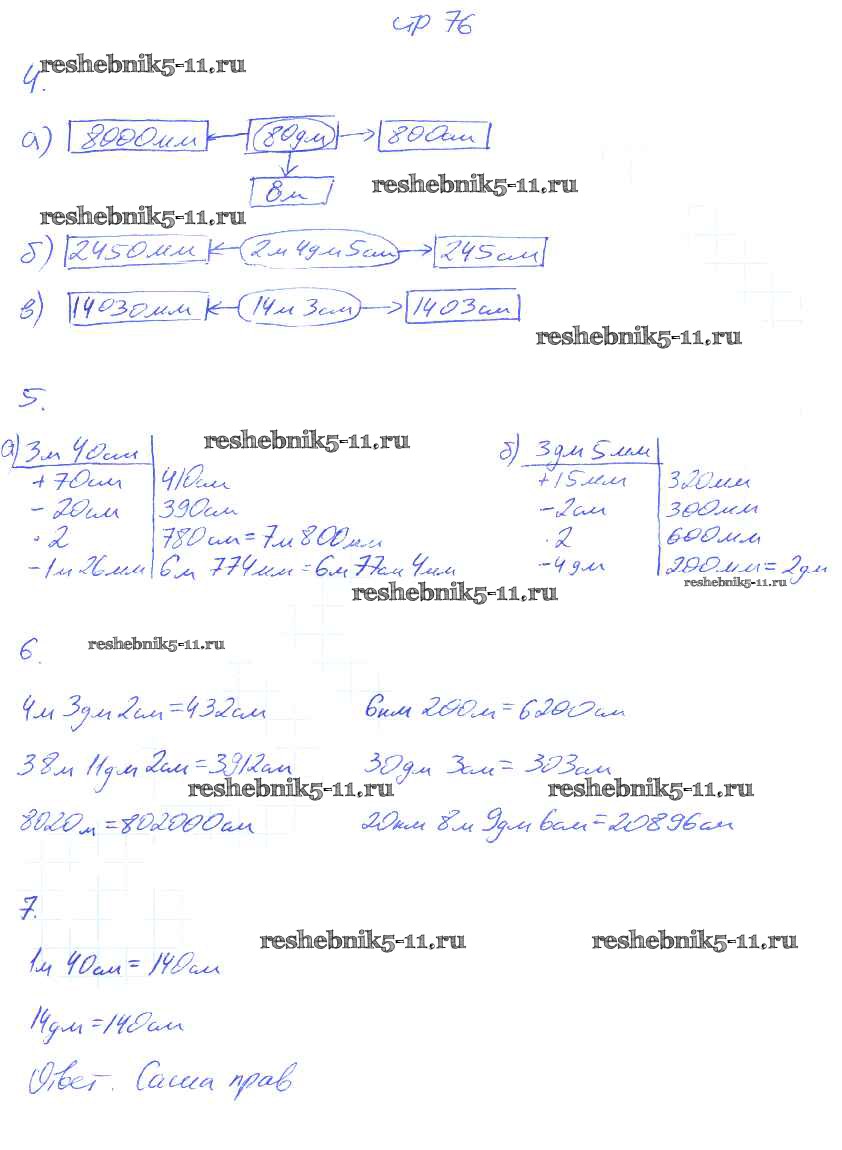 стр 76
reshebnik5-11.ru
4.
а) 8000мм ← 80дм → 800см
↓
8м
reshebnik5-11.ru
reshebnik5-11.ru
б) 2450мм ← 2м 4дм 5см → 245см
в) 14030мм ← 14м 3см → 1403см
reshebnik5-11.ru
5.
reshebnik5-11.ru
а) 3м 40см
+ 70см 410см
- 20см 390см
· 2 780см = 7м 800мм
- 1м 26мм 6м 774мм = 6м 77см 4мм
б) 3дм 5мм
+ 15мм 320мм
- 2см 300мм
· 2 600мм
- 4дм 200мм = 2дм
reshebnik5-11.ru
reshebnik5-11.ru
6.
reshebnik5-11.ru
4м 3дм 2см = 432см 6км 200м = 6200см
38м 11дм 2см = 3912см 30дм 3см = 303см
reshebnik5-11.ru reshebnik5-11.ru
8020м = 802000см 20км 8м 9дм 6см = 20896см
7.
reshebnik5-11.ru reshebnik5-11.ru
1м 40см = 140см
14дм = 140см
Ответ. Саша прав